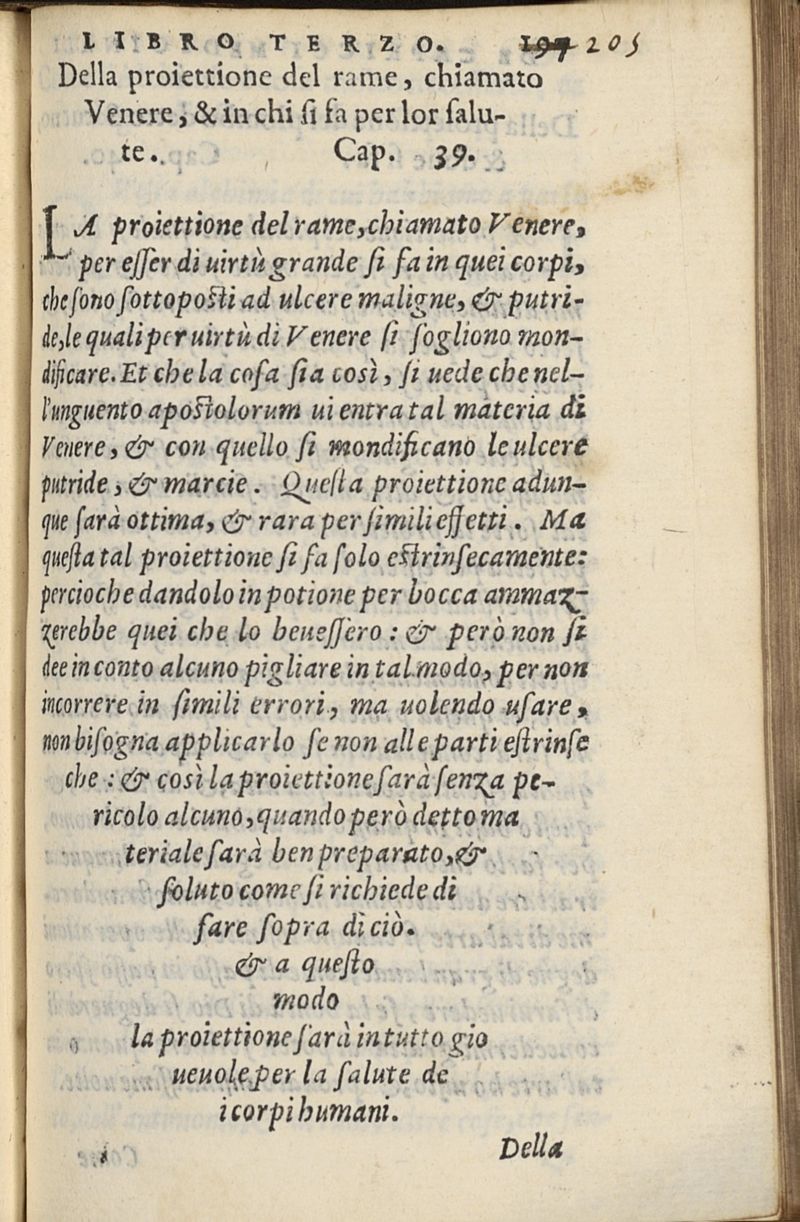 LIBRO TERZO. 197 205
Della proiettione del rame, chiamato
Venere, & in chi si fa per lor salu-
te. Cap. 39.
LA proiettione del rame, chiamato Venere,
per esser di uirtù grande si fa in quei corpi,
che sono sottoposti ad ulcere maligne, & putri-
de, le quali per uirtù di Venere si sogliono mon-
dificare. Et che la cosa sia così, si uede che nel-
l'unguento apostolorum ui entra tal materia di
Venere, & con quello si mondificano le ulcere
putride, & marcie. Questa proiettione adun-
que sarà ottima, & rara per simili effetti. Ma
questa tal proiettione si fa solo estrinsecamente:
percioche dandolo in potione per bocca ammaz-
zerebbe quei che lo beuessero: & però non si
dee in conto alcuno pigliare in tal modo, per non
incorrere in simili errori, ma uolendo usare,
non bisogna applicarlo se non alle parti estrinse
che: & così la proiettione sarà senza pe-
ricolo alcuno, quando però detto ma
teriale sarà ben preparato, &
soluto come si richiede di
fare sopra di ciò.
& a questo
modo
la proiettione sarà in tutto gio
ueuole per la salute de
i corpi humani.
Della